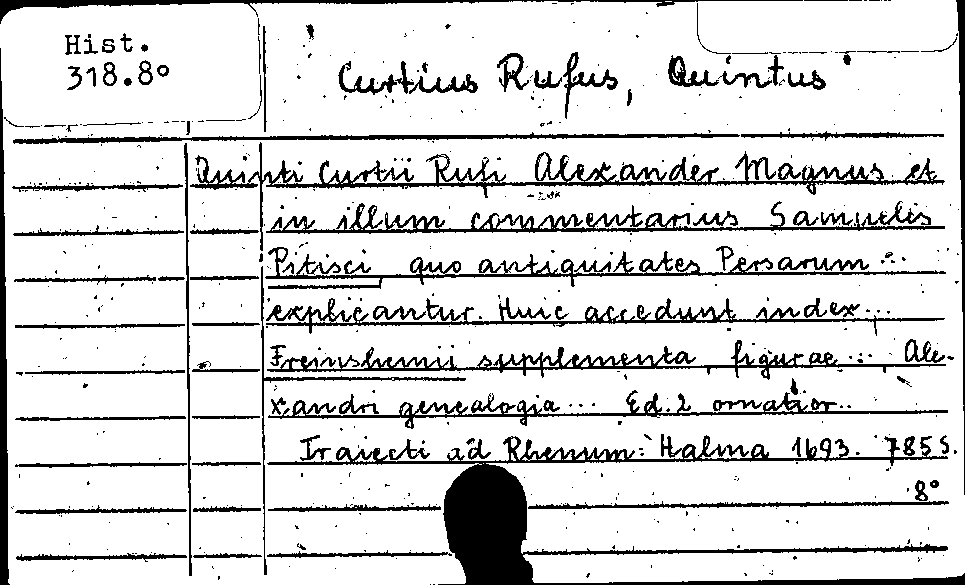 Hist.
318.8°
Curtius Rufus, Quintus
Quinti Curtii Rufi Alexander Magnus et
in illum commentarius Samuelis
Pitisci, quo antiquitates Persarum ...
explicantur. Huic accedunt index ...
Freinshemii supplementa, figurae ... Ale-
xandri genealogia ... Ed. 2 ornatior..
Traiecti ad Rhenum: Halma 1693. 785 S.
8°